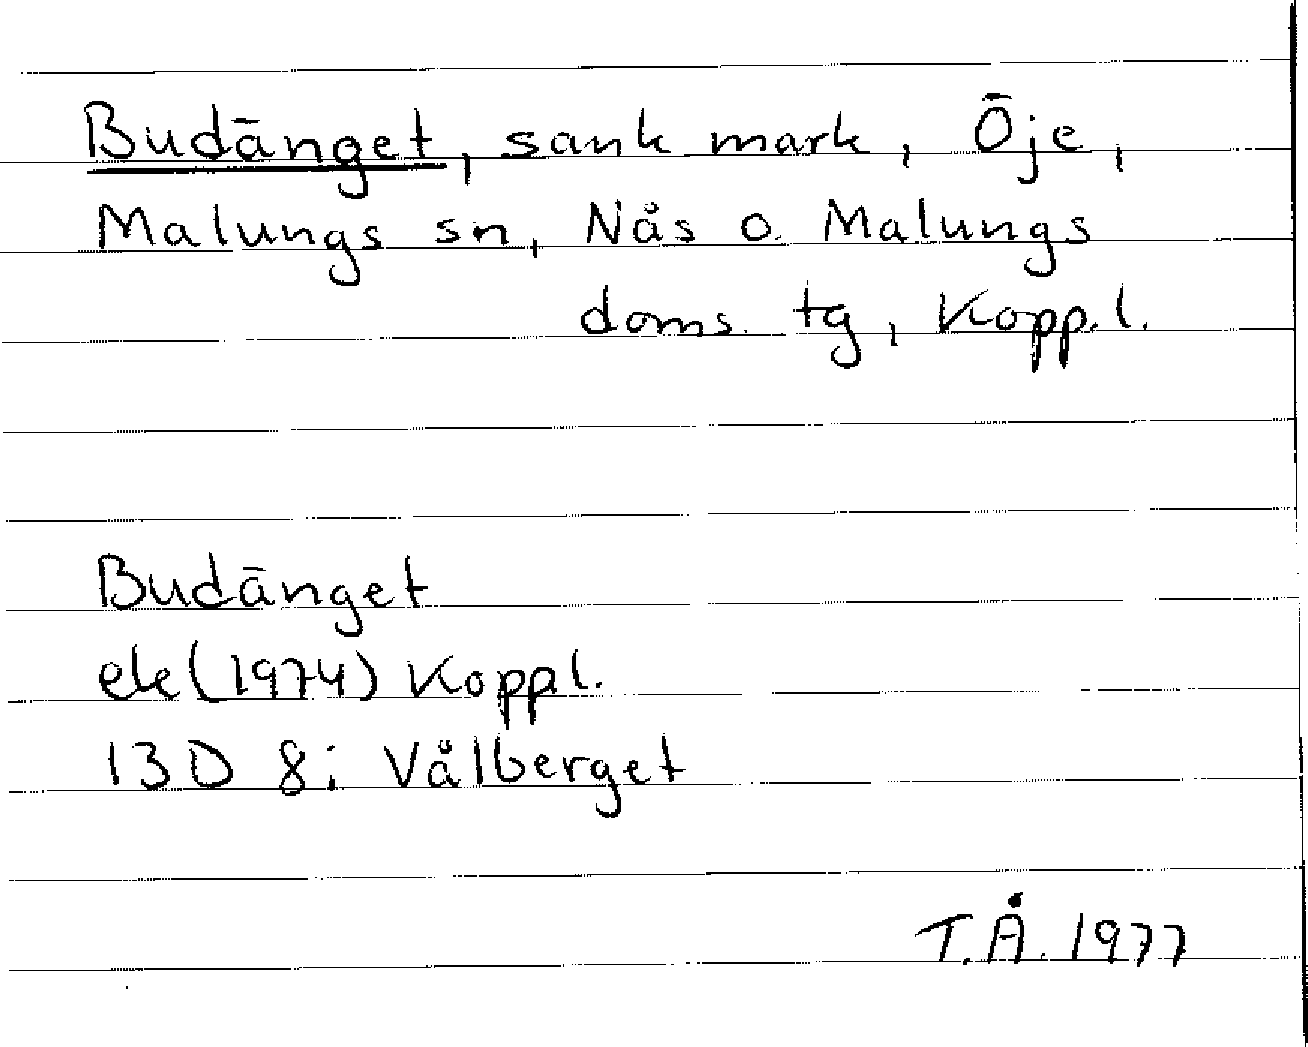 Budänget, sank mark, Öje,
Malungs sn, Nås o. Malungs
doms. tg, Kopp.l.
Budänget
ek (1974) Koppl.
13D 8i Vålberget
T.Å. 1977